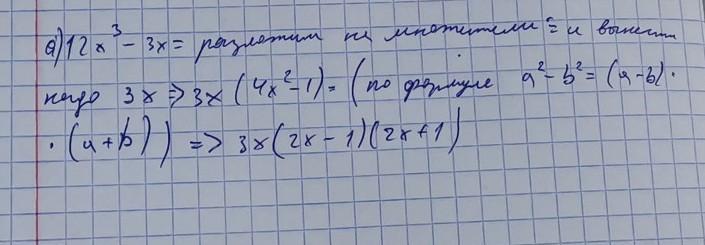 а) 12x³ - 3x = разложим на множители = и вынести
надо 3x => 3x (4x² - 1) = (по формуле a² - b² = (a - b) ·
· (a + b)) => 3x (2x - 1)(2x + 1)